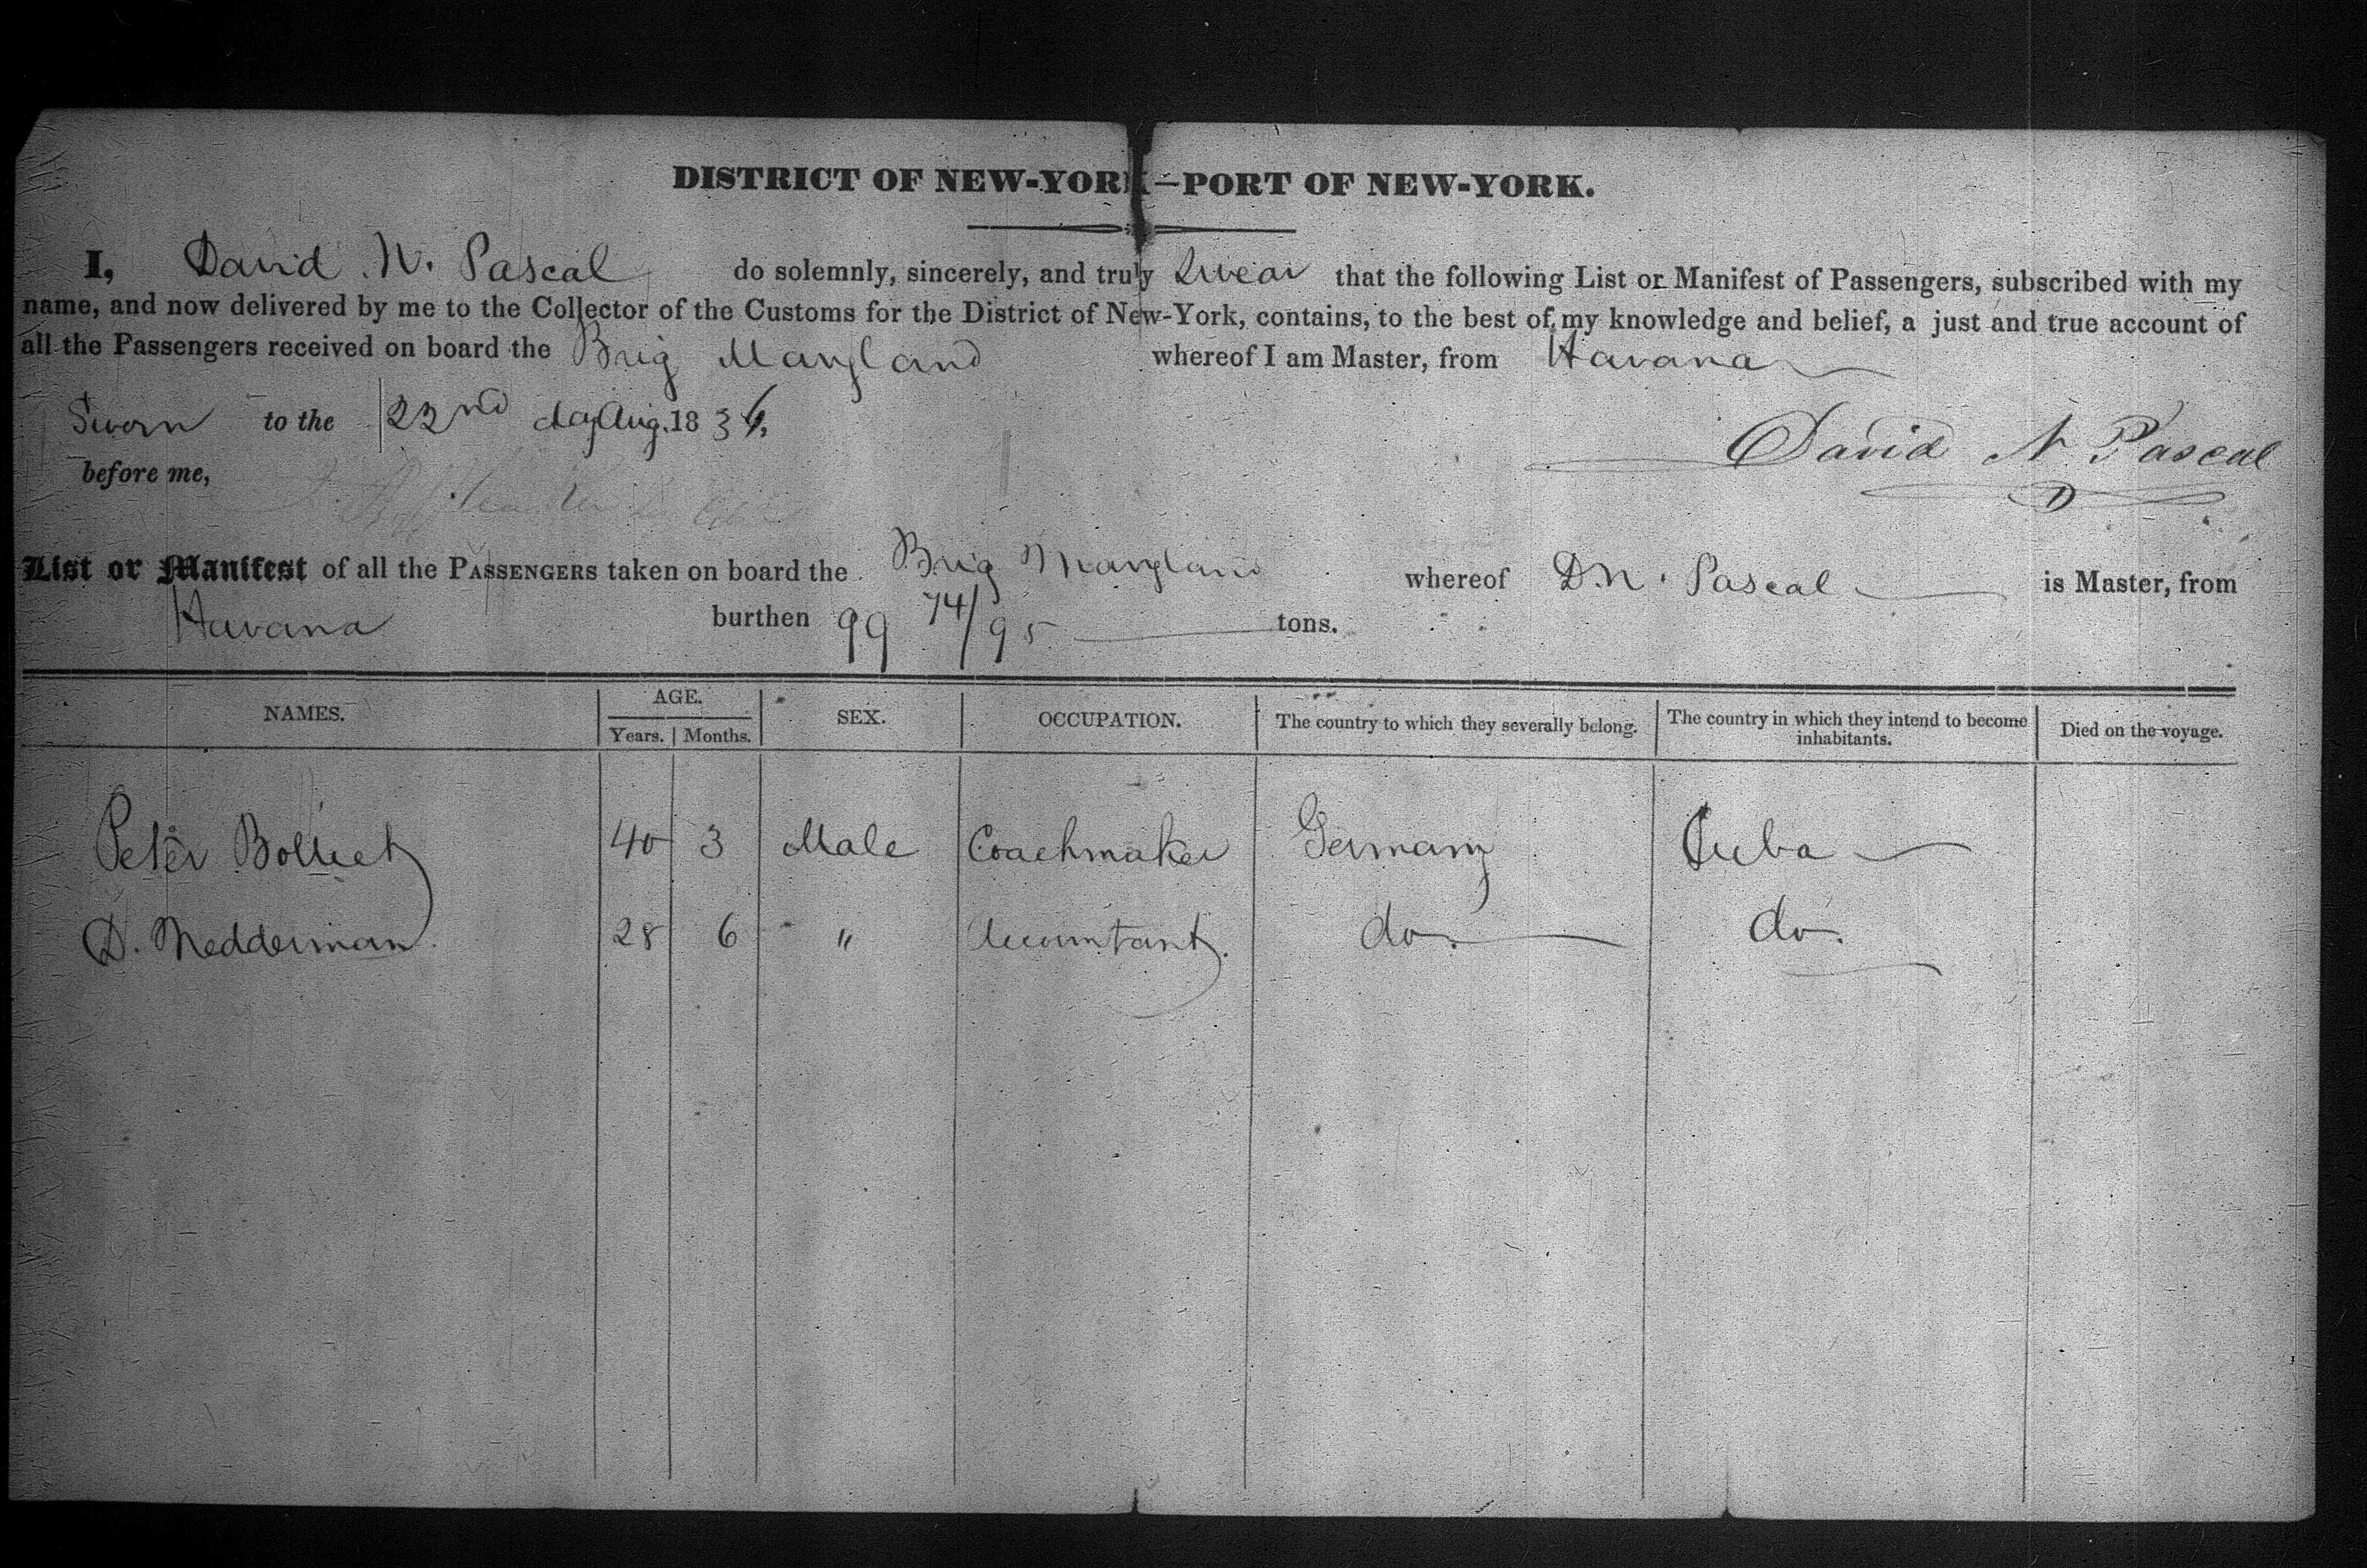 DISTRICT OF NEW-YORK—PORT OF NEW-YORK.
I, David N. Pascal do solemnly, sincerely, and truly Swear that the following List or Manifest of Passengers, subscribed with my
name, and now delivered by me to the Collector of the Customs for the District of New-York, contains, to the best of my knowledge and belief, a just and true account of
all the Passengers received on board the Brig Maryland whereof I am Master, from Havana
Sworn to the 22nd day Aug. 1836,
David N Pascal
before me,
List or Manifest of all the PASSENGERS taken on board the Brig Maryland whereof D.N. Pascal is Master, from
Havana burthen 99 74/95 tons.
NAMES. AGE. SEX. OCCUPATION. The country to which they severally belong. The country in which they intend to become inhabitants. Died on the voyage.
Years. Months.
Peter Bolliet 40 3 Male Coachmaker Germany Cuba
D. Nedderman 28 6 " Accountant. do. do.